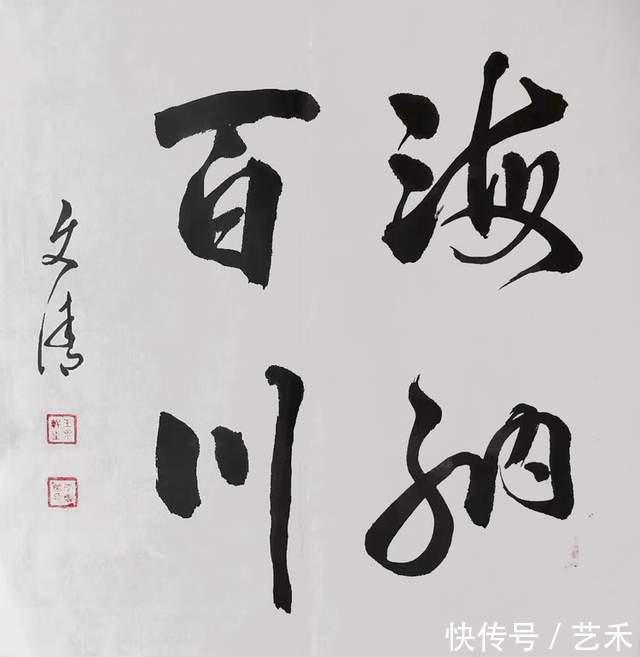 海纳
百川
文清
快传号 / 艺禾